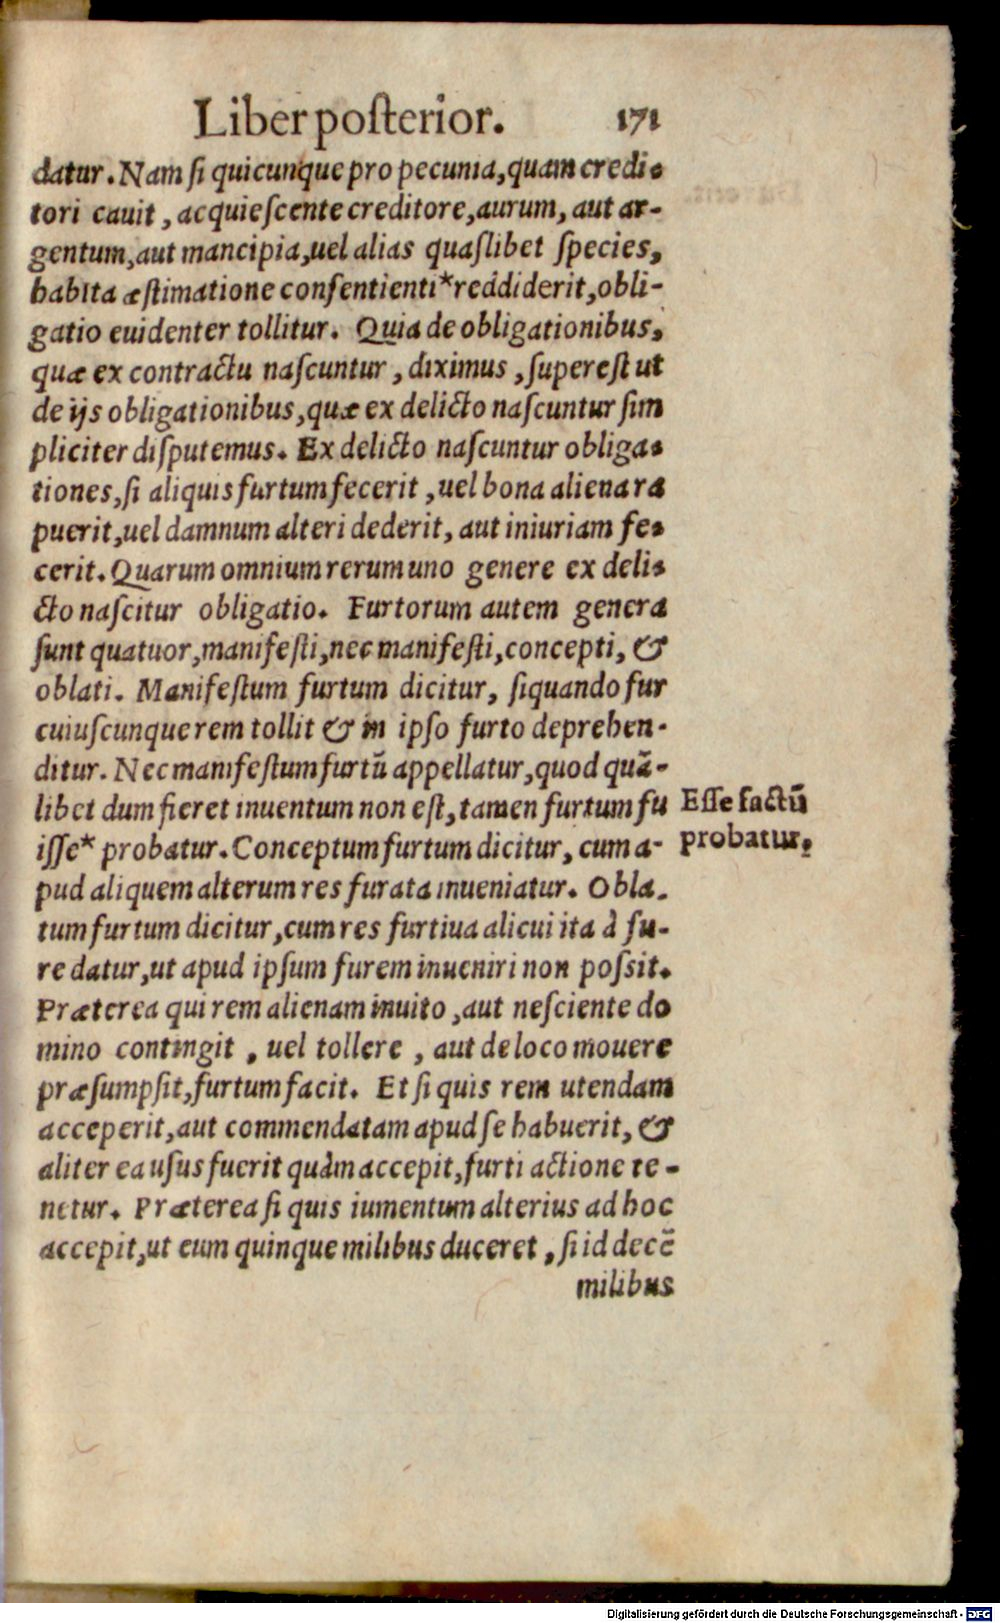 Liber poſterior. 171
datur. Nam ſi quicunque pro pecunia, quam credi-
tori cauit, acquieſcente creditore, aurum, aut ar-
gentum, aut mancipia, uel alias quaſlibet ſpecies,
habita æſtimatione conſentienti* reddiderit, obli-
gatio euidenter tollitur. Quia de obligationibus,
quæ ex contractu naſcuntur, diximus, ſupereſt ut
de ijs obligationibus, quæ ex delicto naſcuntur ſim
pliciter diſputemus. Ex delicto naſcuntur obliga-
tiones, ſi aliquis furtum fecerit, uel bona aliena ra
puerit, uel damnum alteri dederit, aut iniuriam fe-
cerit. Quarum omnium rerum uno genere ex deli-
cto naſcitur obligatio. Furtorum autem genera
ſunt quatuor, manifeſti, nec manifeſti, concepti, &
oblati. Manifeſtum furtum dicitur, ſiquando fur
cuiuſcunque rem tollit & in ipſo furto deprehen-
ditur. Nec manifeſtum furtũ appellatur, quod quã-
libet dum fieret inuentum non eſt, tamen furtum fu
iſſe* probatur. Conceptum furtum dicitur, cum a-
pud aliquem alterum res furata inueniatur. Obla-
tum furtum dicitur, cum res furtiua alicui ita à fu-
re datur, ut apud ipſum furem inueniri non poſsit.
Præterea qui rem alienam inuito, aut neſciente do
mino contingit, uel tollere, aut de loco mouere
præſumpſit, furtum facit. Et ſi quis rem utendam
acceperit, aut commendatam apud ſe habuerit, &
aliter ea uſus fuerit quàm accepit, furti actione te-
netur. Præterea ſi quis iumentum alterius ad hoc
accepit, ut eum quinque milibus duceret, ſi id decẽ
milibus
Eſſe factũ
probatur.
Digitalisierung gefördert durch die Deutsche Forschungsgemeinschaft - DFG